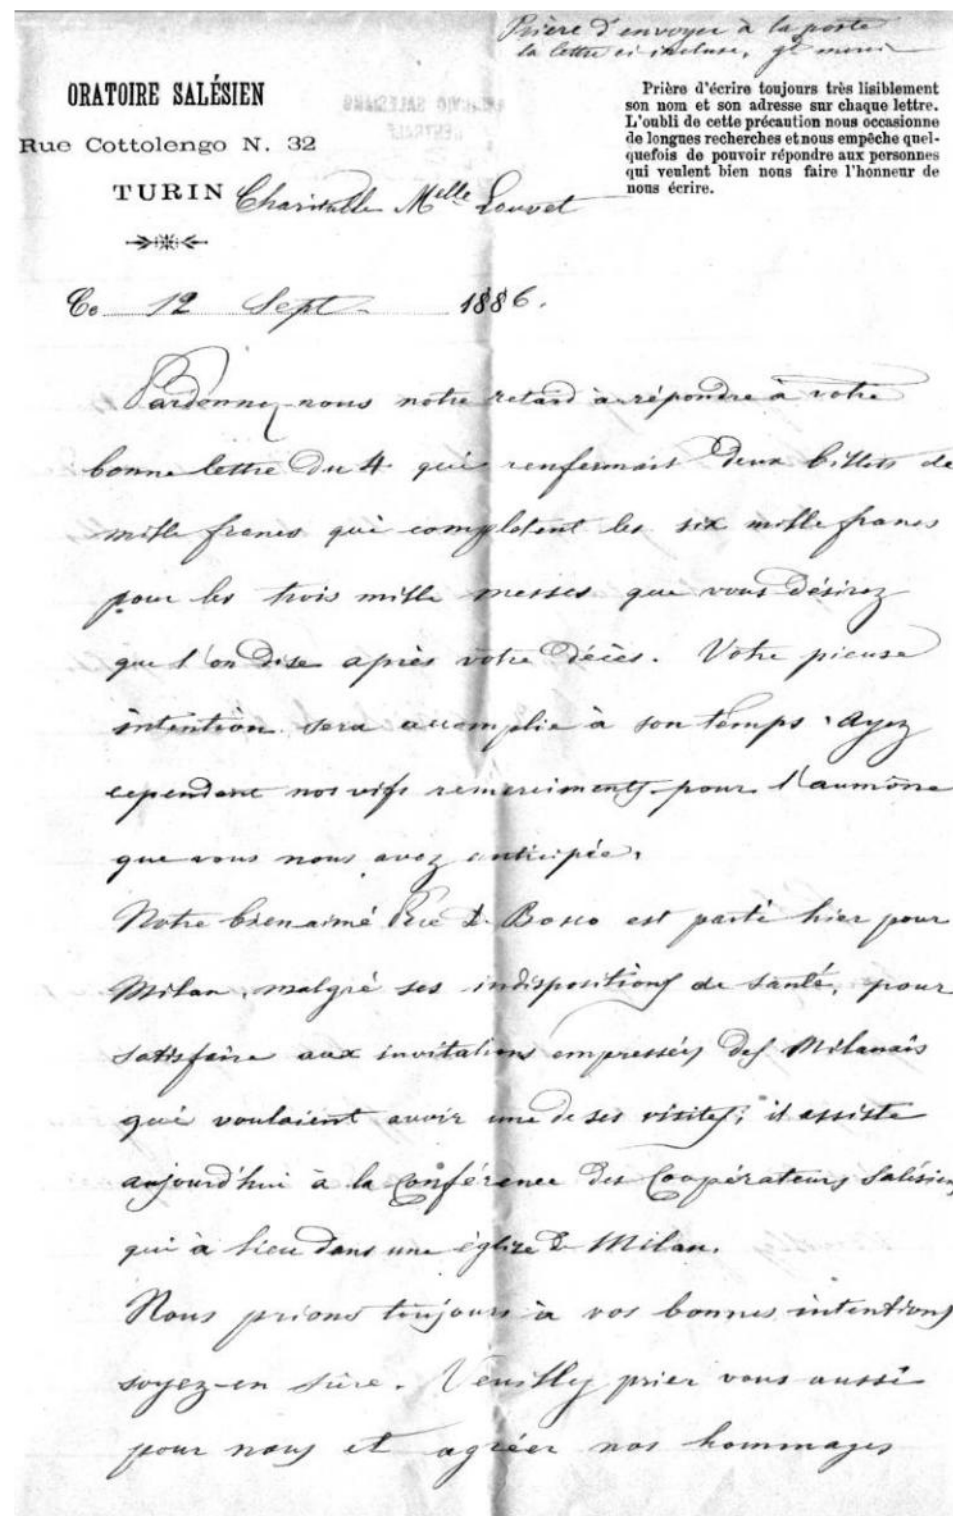 Prière d'envoyer à la poste
la lettre ci incluse, et merci
ORATOIRE SALÉSIEN
Rue Cottolengo N. 32
TURIN
Prière d'écrire toujours très lisiblement
son nom et son adresse sur chaque lettre.
L'oubli de cette précaution nous occasionne
de longues recherches et nous empêche quel-
quefois de pouvoir répondre aux personnes
qui veulent bien nous faire l'honneur de
nous écrire.
Charitable Melle Louvet
Ce 12 Sept 1886.
Pardonnez-nous notre retard à répondre à votre
bonne lettre du 4 qui renfermait deux billets de
mille francs qui complètent les six mille francs
pour les trois mille messes que vous désirez
que l'on dise après votre décès. Votre pieuse
intention sera accomplie à son temps. Ayez
cependant nos vifs remerciments pour l'aumône
que vous nous avez anticipée.
Notre bien-aimé Père D. Bosco est parti hier pour
Milan, malgré ses indispositions de santé, pour
satisfaire aux invitations empressées des Milanais
qui voulaient avoir une de ses visites; il assiste
aujourd'hui à la Conférence des Coopérateurs Salésiens
qui à lieu dans une église de Milan.
Nous prions toujours à vos bonnes intentions
soyez-en sûre. Veuilly prier vous aussi
pour nous et agréer nos hommages